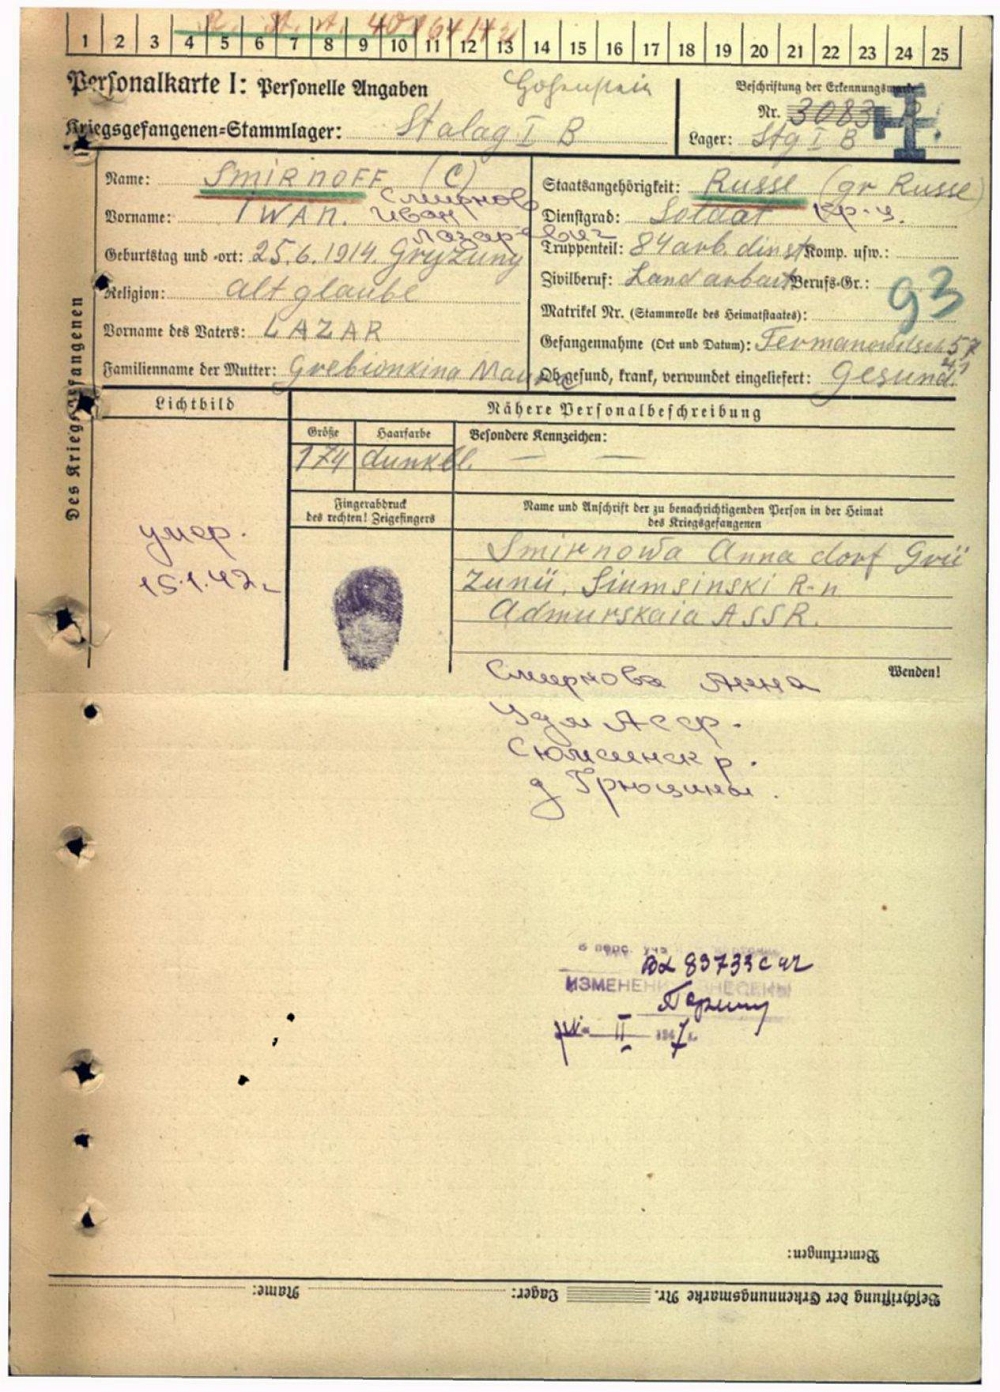 R. St. A. 40 64/42
1 2 3 4 5 6 7 8 9 10 11 12 13 14 15 16 17 18 19 20 21 22 23 24 25
Personalkarte I: Personelle Angaben
Hohenstein
Beschriftung der Erkennungsmarke
Nr. 3083
Kriegsgefangenen-Stammlager: Stalag I B
Lager: Stg I B
Des Kriegsgefangenen
Name: SMIRNOFF (C)
Смирнов
Vorname: IWAN. Иван
Лазаревич
Geburtstag und -ort: 25.6.1914. Gryzuny
Religion: alt glaube
Vorname des Vaters: LAZAR
Familienname der Mutter: Grebionkina
Staatsangehörigkeit: Russe (gr Russe)
Dienstgrad: Soldat кр-ц.
Truppenteil: 84 arb. dinst Komp. usw.:
Zivilberuf: Landarbait Berufs-Gr.: 93
Matrikel Nr. (Stammrolle des Heimatstaates):
Gefangennahme (Ort und Datum):
Ob gesund, krank, verwundet eingeliefert: gesund.
Lichtbild
Nähere Personalbeschreibung
Größe Haarfarbe Besondere Kennzeichen:
174 dunkel. — —
Fingerabdruck
des rechten! Zeigefingers
Name und Anschrift der zu benachrichtigenden Person in der Heimat
des Kriegsgefangenen
умер.
15.1.42г
Smirnowa Anna dorf Grü
Zunü, Siumsinski R-n
Admurskaia ASSR.
Wenden!
Смирнова Анна
Удм Асср.
Сюмсинск р.
д Грюзины.
В перс. уч.
Вх 83733с
ИЗМЕНЕНИЯ ВНЕСЕНЫ
II
Bemerkungen:
Beschriftung der Erkennungsmarke Nr. Lager: Name: